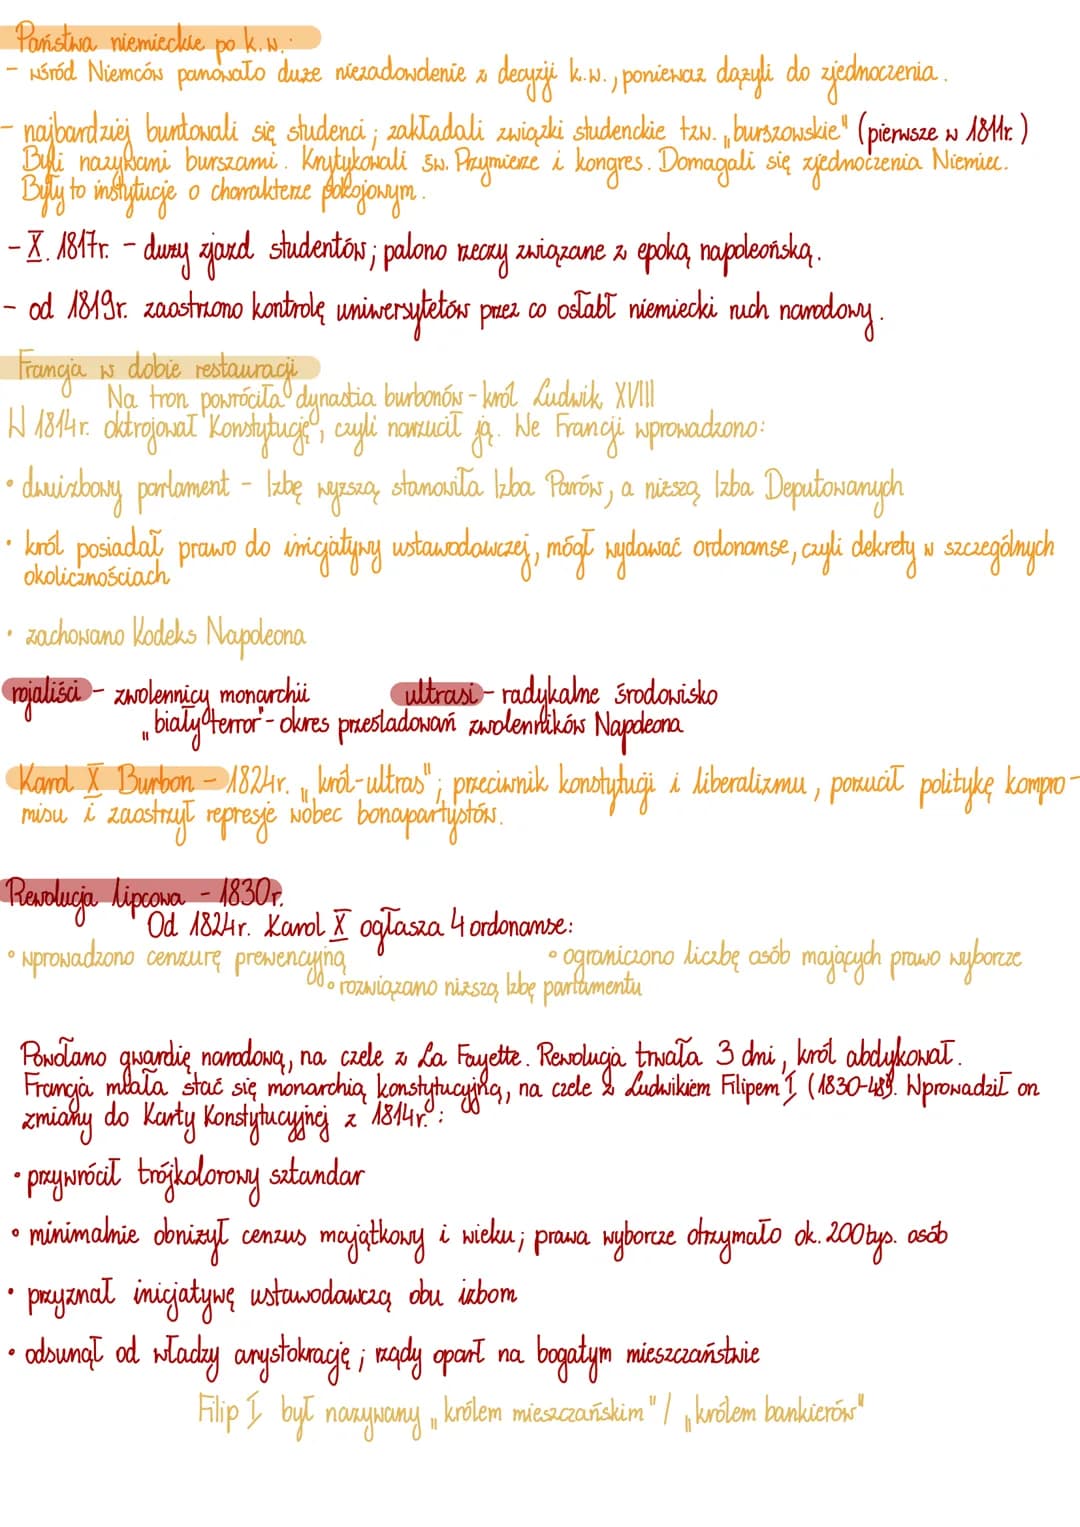 Państwa niemieckie po k.w.
- wśród Niemców panowało duże niezadowolenie z decyzji k.w., ponieważ dążyli do zjednoczenia.
- najbardziej buntowali się studenci; zakładali związki studenckie tzw. „burszowskie" (pierwsze w 1811r.)
Byli nazywani burszami. Krytykowali Św. Przymierze i kongres. Domagali się zjednoczenia Niemiec.
Były to instytucje o charakterze pokojowym.
- X. 1817r. - duży zjazd studentów; palono rzeczy związane z epoką napoleońską.
- od 1819r. zaostrzono kontrolę uniwersytetów przez co osłabł niemiecki ruch narodowy.
Francja w dobie restauracji
Na tron powróciła dynastia burbonów - król Ludwik XVIII
W 1814r. oktrojował "Konstytucję", czyli narzucił ją. We Francji wprowadzono:
• dwuizbowy parlament - Izbę wyższą stanowiła Izba Parów, a niższą Izba Deputowanych
• król posiadał prawo do inicjatywy ustawodawczej, mógł wydawać ordonanse, czyli dekrety w szczególnych
okolicznościach
• zachowano Kodeks Napoleona
rojaliści - zwolennicy monarchii ultrasi - radykalne środowisko
„biały terror" - okres prześladowań zwolenników Napoleona
Karol X Burbon - 1824r. „król-ultras"; przeciwnik konstytucji i liberalizmu, porzucił politykę kompro-
misu i zaostrzył represje wobec bonapartystów.
Rewolucja lipcowa - 1830r.
Od 1824r. Karol X ogłasza 4 ordonanse:
• wprowadzono cenzurę prewencyjną • ograniczono liczbę osób mających prawo wyborcze
• rozwiązano niższą Izbę parlamentu
Powołano gwardię narodową, na czele z La Fayette. Rewolucja trwała 3 dni, król abdykował.
Francja miała stać się monarchią konstytucyjną, na czele z Ludwikiem Filipem I (1830-48). Wprowadził on
zmiany do Karty Konstytucyjnej z 1814r.:
• przywrócił trójkolorowy sztandar
• minimalnie obniżył cenzus majątkowy i wieku; prawa wyborcze otrzymało ok. 200 tys. osób
• przyznał inicjatywę ustawodawczą obu izbom
• odsunął od władzy arystokrację; rządy oparł na bogatym mieszczaństwie
Filip I był nazywany „królem mieszczańskim" / „królem bankierów"